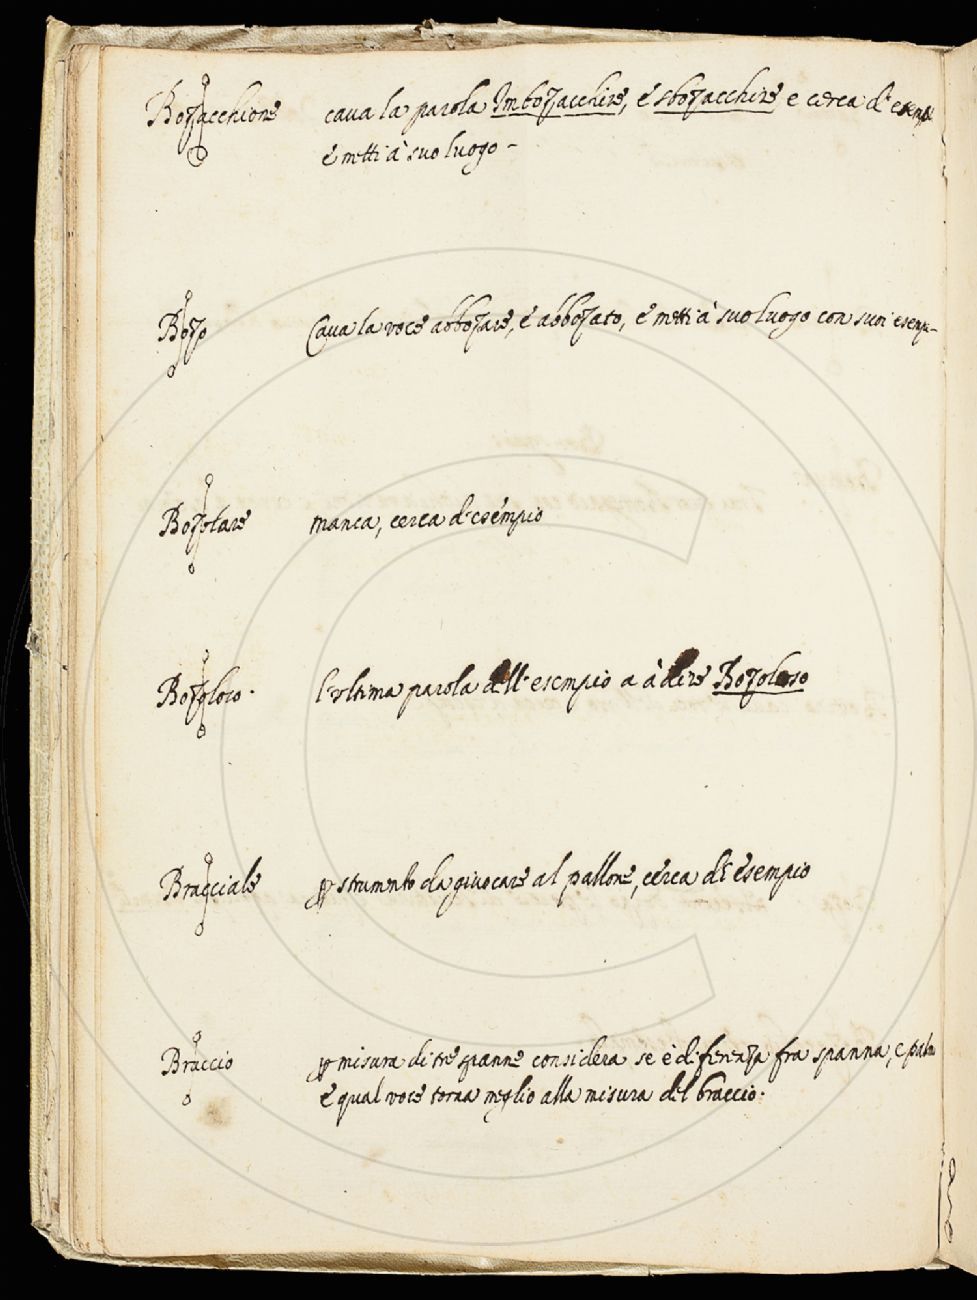 Bozzacchione cava la parola Imbozacchire, é sbozacchire e cerca d'esemp
é metti à suo luogo -
Bozo Cava la voce abbozare, é abbozato, é metti à suo luogo con suoi esemp-
Bozolare manca, cerca d'esempio
Bozoloso. l'vltima parola dell'esempio a à dire Bozoloso
Bracciale p strumento da giuocare al pallone, cérca dè ésempio
Braccio p misura di tre spanne considera se è diferenza fra spanna, e palm
é qual voce torna meglio alla misura del braccio.